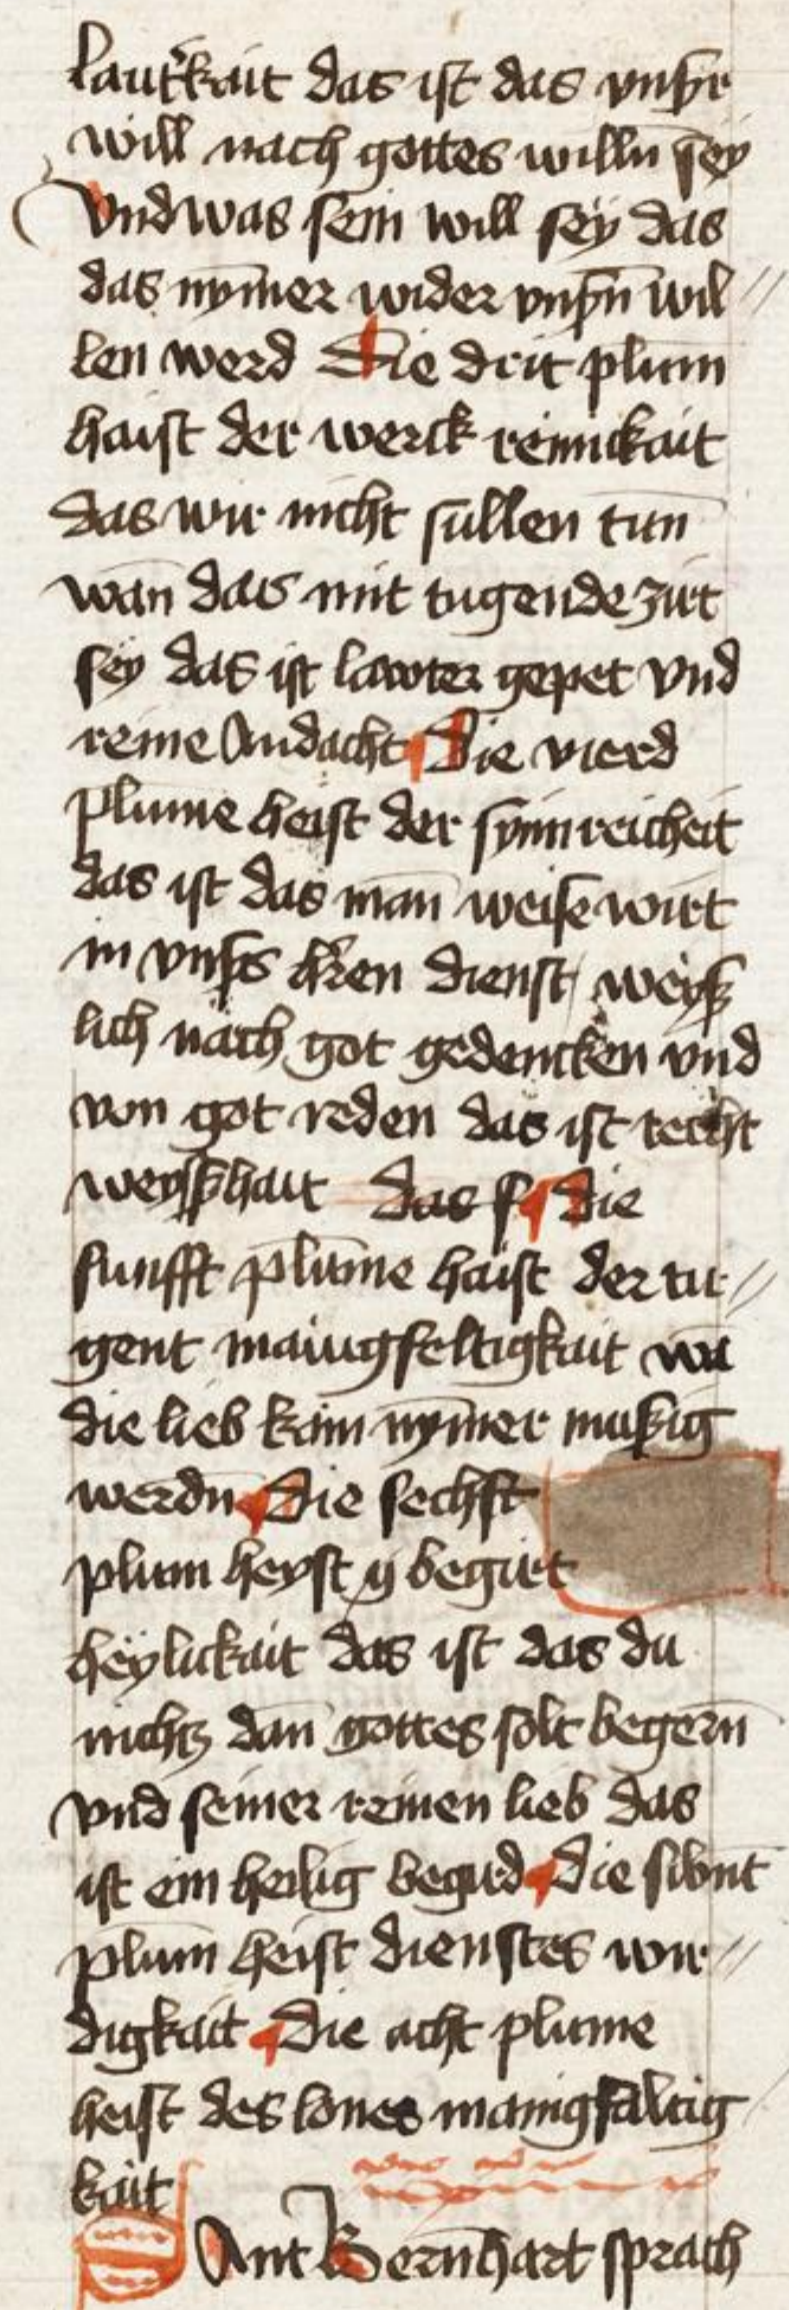 lautʼkait das ist das vnßr
will nach gottes willn̄ sey
Vnd was sein will sey das
das nym̄er wider vnßn̄ wil//
len werd Die drit plum
haist der werck reinickait
das wir nicht süllen tun̄
wan̄ das mit tugende zirt
sey das ist lawter gepet vnd
reine Andacht Die vierd
plume heist der synnreicheit
das ist das man̄ weise wirt
in vnßs hʼren dienst / weyß
lich nach got gedencken vnd
von got reden das ist recht
weyßhait das f Die
funfft plum̄e haist der tu//
gent manigfeltigkait wā
die lieb kain nym̄er mußig
werdn̄ Die sechst
plum heyst ÿ begirt
heylickait das ist das du
nichtz dan̄ gottes solt begern̄
vnd seiner reinen lieb das
ist ein heilig begird Die sibnt̄
plum̄ heist dienstes wir//
digkait Die acht plume
heist des lones manigfaltig
kait
SAnt Bern̄hart sprach